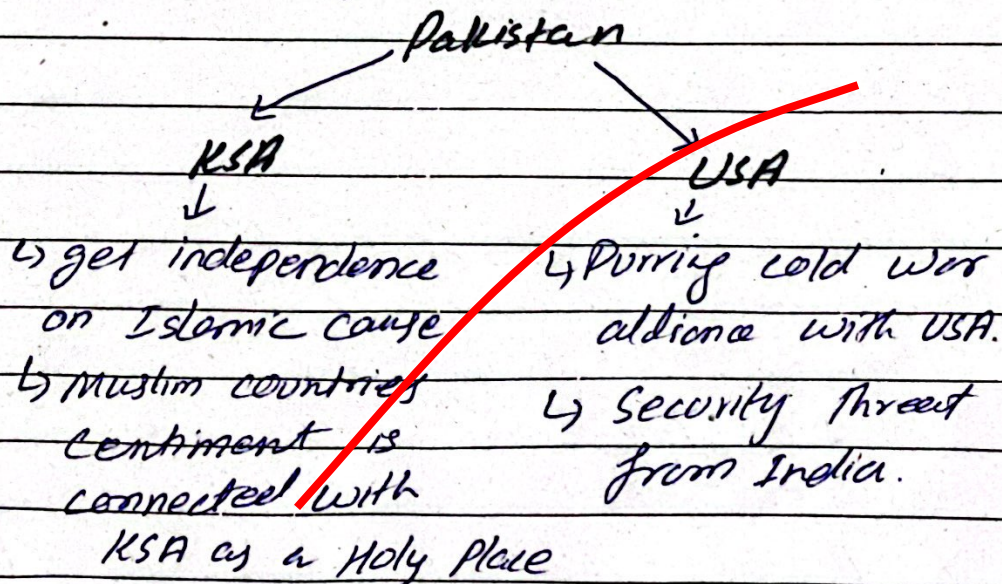 Pakistan
KSA
USA
↳ get independence
on Islamic cause
↳ Muslim countries
centiment is
connected with
KSA as a Holy Place
↳ Durrig cold war
aldiance with USA.
↳ Security Threat
from India.